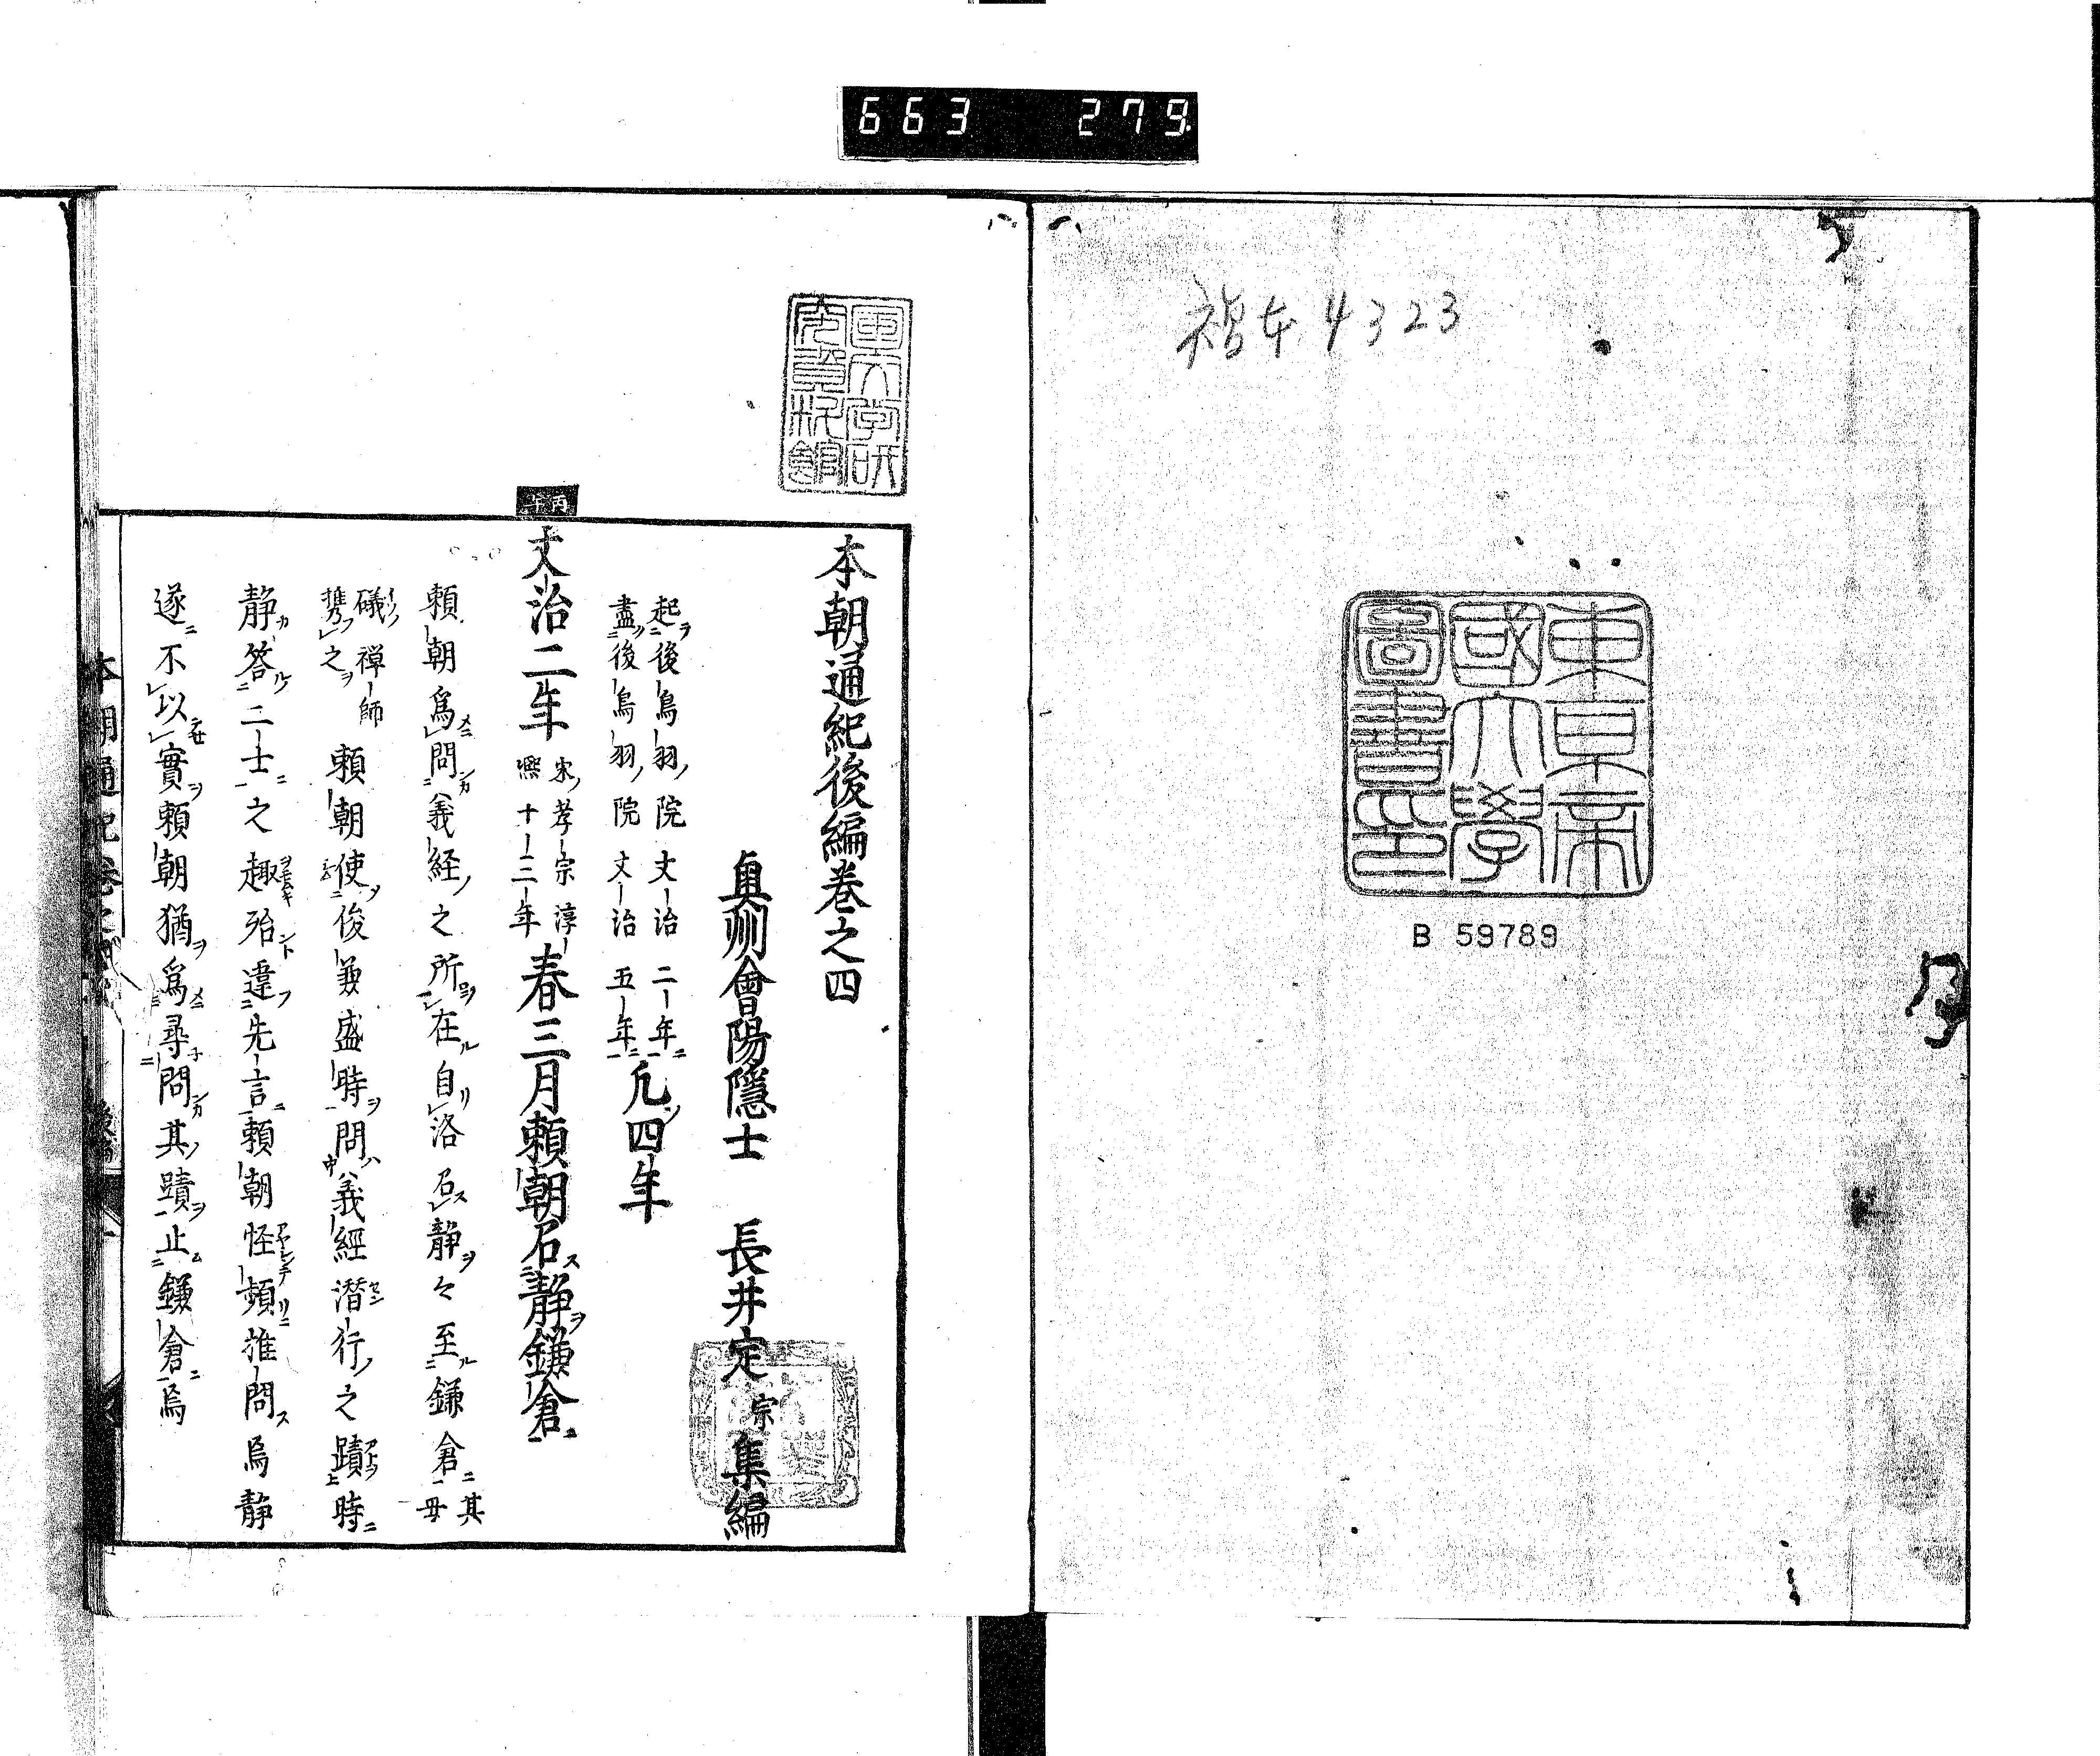 663 279
4323
東京帝
國大學
圖書印
B 59789
國文學研
究資料館
本朝通紀後編卷之四
奥州會陽隱士 長井定宗集編
起後鳥羽院文治二年
盡後鳥羽院文治五年
凢四年
丙午
文治二年
宋孝宗淳
熙十三年
春三月頼朝召静鎌倉
頼朝爲問義経之所在自洛召静々至鎌倉
其母
礒禅師
携之
頼朝使俊兼盛時問義經潜行之蹟時
静答二士之趣殆違先言頼朝怪頻推問焉静
遂不以實頼朝猶爲尋問其蹟止鎌倉焉